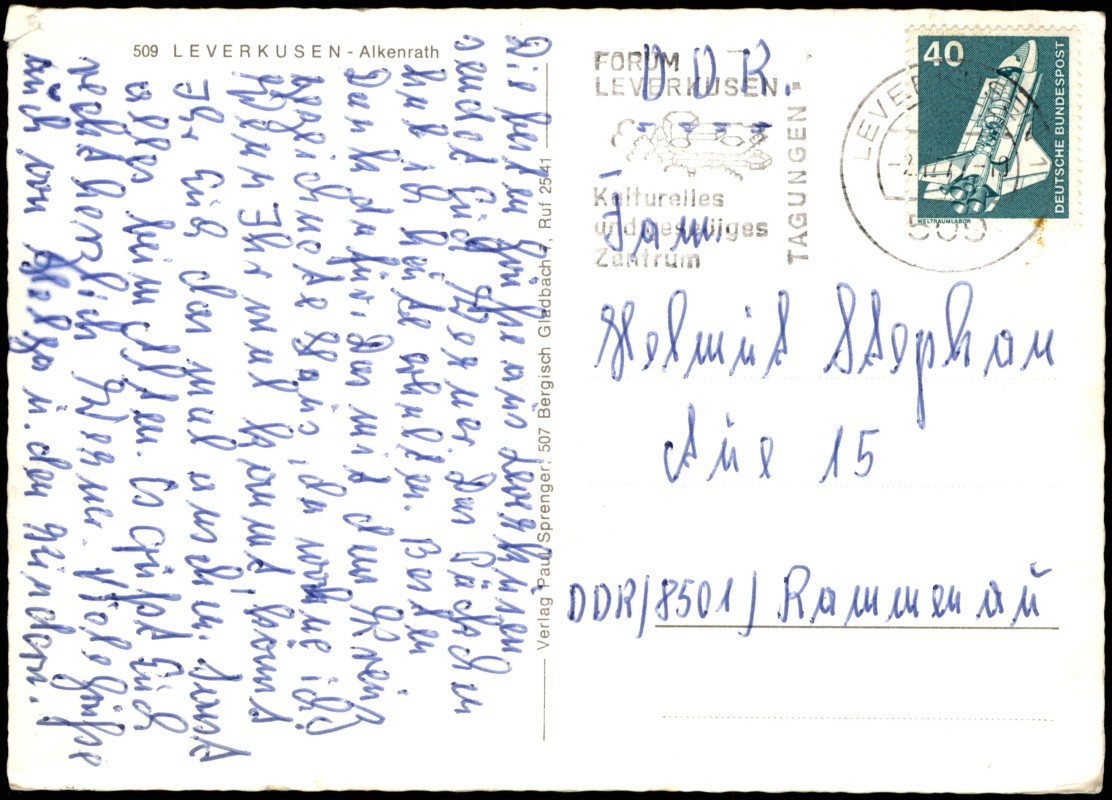 509 LEVERKUSEN - Alkenrath
Die besten Grüße aus Leverkusen
sendet Euch Werner. Das Päckchen
hab ich heute erhalten. Besten
Dank dafür. Das mit dem Kreuz
bezeichnete Haus, da wohne ich.
Wenn Ihr mal kommt, könnt
Ihr Euch das mal ansehn. Sonst
alles beim Alten. Es grüßt Euch
recht herzlich Werner. Viele Grüße
auch von Helga u. den Kindern.
Verlag Paul Sprenger, 507 Bergisch Gladbach 7, Ruf 2541
DDR.
FORUM
LEVERKUSEN
Kulturelles
und geselliges
Zentrum
TAGUNGEN
LEVERKUSEN
509
40
DEUTSCHE BUNDESPOST
WELTRAUMLABOR
Fam.
Helmut Stephan
Aue 15
DDR/8501/Rammenau